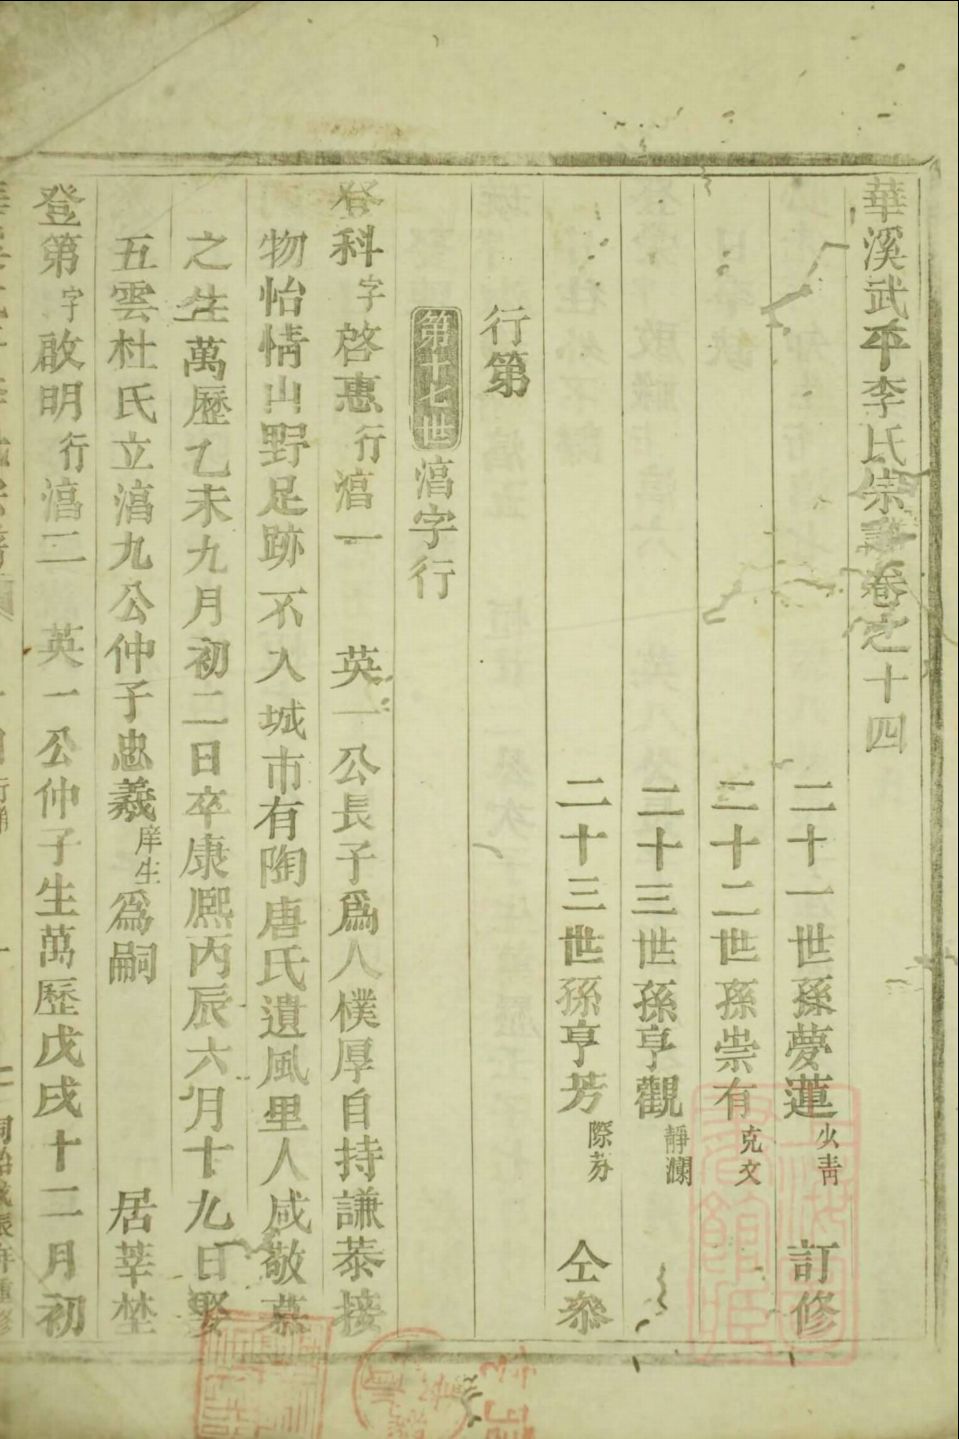 華溪武平李氏宗譜卷之十四
二十一世孫夢蓮火青 訂修
二十二世孫崇有克文
二十三世孫亨觀靜瀾
二十三世孫亨芳際芬 仝叅
行第
第廿七世 湻字行
登科字啓惠行湻一 英一公長子爲人樸厚自持謙恭接
物怡情山野足跡不入城市有陶唐氏遺風里人咸敬慕
之生萬歷乙未九月初二日卒康熙丙辰六月十九日娶
五雲杜氏立湻九公仲子忠義庠生爲嗣 居莘塋
登第字啟明行湻二 英一公仲子生萬歷戊戌十二月初